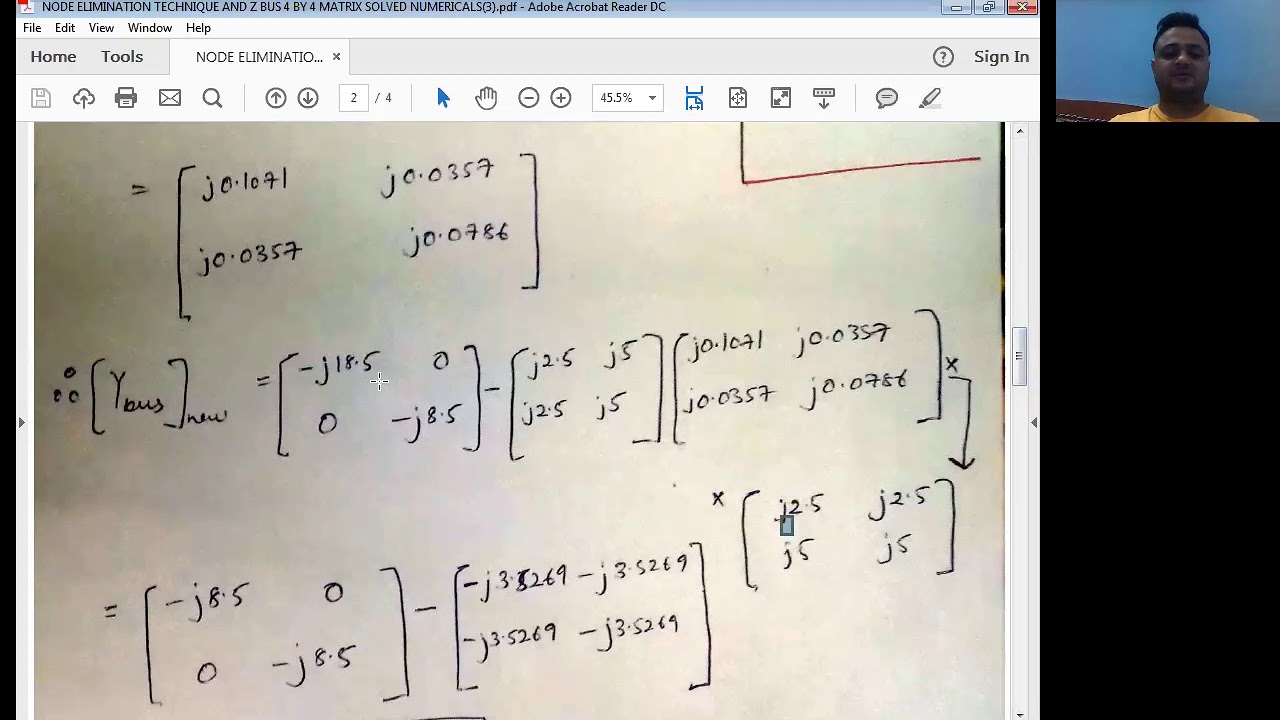 NODE ELIMINATION TECHNIQUE AND Z BUS 4 BY 4 MATRIX SOLVED NUMERICALS(3).pdf - Adobe Acrobat Reader DC
File Edit View Window Help
Home Tools NODE ELIMINATIO... × ? Sign In
2 / 4 45.5%
= [ j0.1071 j0.0357
j0.0357 j0.0786 ]
∴ [Ybus]new = [ -j18.5 0 ] - [ j2.5 j5 ] [ j0.1071 j0.0357 ] ×
[ 0 -j8.5 ] [ j2.5 j5 ] [ j0.0357 j0.0786 ]
× [ j2.5 j2.5
j5 j5 ]
= [ -j8.5 0 ] - [ -j3.5269 -j3.5269 ]
[ 0 -j8.5 ] [ -j3.5269 -j3.5269 ]